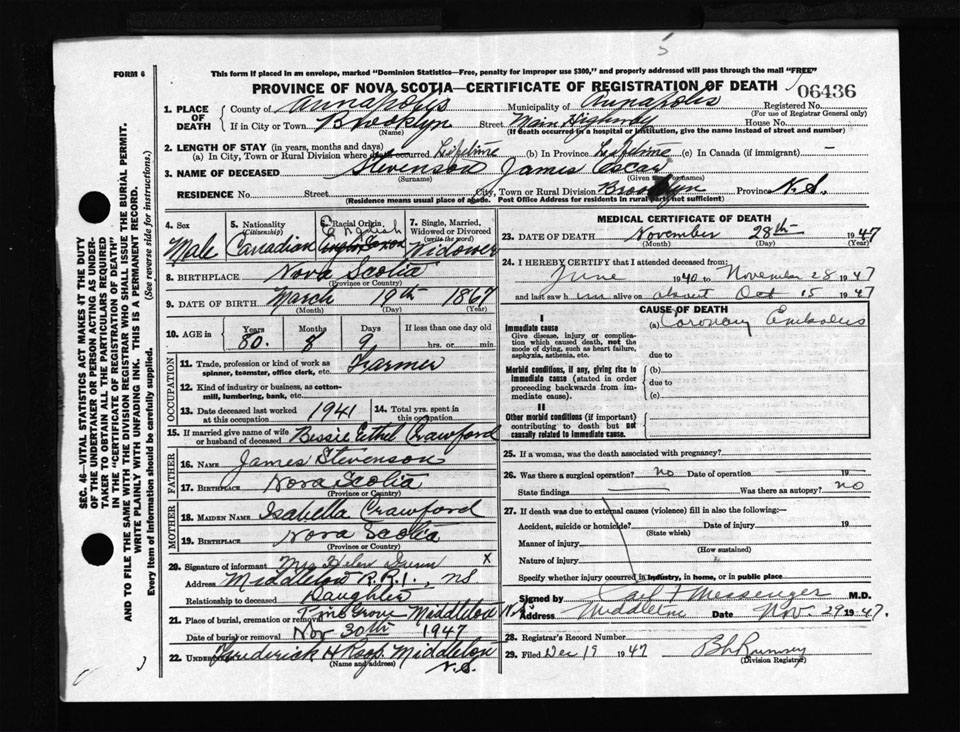 5
FORM 6
This form if placed in an envelope, marked "Dominion Statistics—Free, penalty for improper use $300," and properly addressed will pass through the mail "FREE"
PROVINCE OF NOVA SCOTIA—CERTIFICATE OF REGISTRATION OF DEATH
06436
1. PLACE OF DEATH
County of Annapolis Municipality of Annapolis Registered No.
(For use of Registrar General only)
If in City or Town Brooklyn Street Main Highway House No.
(Name) (If death occurred in a hospital or institution, give the name instead of street and number)
2. LENGTH OF STAY (in years, months and days)
(a) In City, Town or Rural Division where death occurred Lifetime (b) In Province Lifetime (c) In Canada (if immigrant) —
3. NAME OF DECEASED Stevenson James Oscar
(Surname) (Given names)
RESIDENCE No. Street City, Town or Rural Division Brooklyn Province N.S.
(Residence means usual place of abode. Post Office Address for residents in rural parts not sufficient)
4. Sex
Male
5. Nationality
(Citizenship)
Canadian
6. Racial Origin
English
Anglo Saxon
7. Single, Married, Widowed or Divorced
(write the word)
Widower
8. BIRTHPLACE Nova Scotia
(Province or Country)
9. DATE OF BIRTH March 19th 1867
(Month) (Day) (Year)
10. AGE in Years Months Days If less than one day old
80. 8 9 hrs. or min.
OCCUPATION
11. Trade, profession or kind of work as spinner, teamster, office clerk, etc. Farmer
12. Kind of industry or business, as cotton-mill, lumbering, bank, etc.
13. Date deceased last worked at this occupation 1941 14. Total yrs. spent in this occupation
15. If married give name of wife or husband of deceased Bessie Ethel Crawford
FATHER
16. NAME James Stevenson
17. BIRTHPLACE Nova Scotia
(Province or Country)
MOTHER
18. MAIDEN NAME Isabella Crawford
19. BIRTHPLACE Nova Scotia
(Province or Country)
20. Signature of informant Mrs Helen X
Address Middleton R.R.1., NS
Relationship to deceased Daughter
21. Place of burial, cremation or removal Pine Grove Middleton N.S.
Date of burial or removal Nov 30th 1947
22. UNDERTAKER Frederick H Roop Middleton
(Name and address) N.S.
MEDICAL CERTIFICATE OF DEATH
23. DATE OF DEATH November 28th 1947
(Month) (Day) (Year)
24. I HEREBY CERTIFY that I attended deceased from:
June 1940 to November 28 1947
and last saw him alive on about Oct 15 1947
CAUSE OF DEATH
I
Immediate cause
Give disease, injury or complication which caused death, not the mode of dying, such as heart failure, asphyxia, asthenia, etc.
(a) Coronary Embolus
due to
Morbid conditions, if any, giving rise to immediate cause (stated in order proceeding backwards from immediate cause).
(b)
due to
(c)
II
Other morbid conditions (if important) contributing to death but not causally related to immediate cause.
25. If a woman, was the death associated with pregnancy?
26. Was there a surgical operation? no Date of operation — 19 —
State findings — Was there an autopsy? no
27. If death was due to external causes (violence) fill in also the following:
Accident, suicide or homicide? Date of injury 19
(State which)
Manner of injury
(How sustained)
Nature of injury
Specify whether injury occurred in industry, in home, or in public place
Signed by Carl Messenger M.D.
Address Middleton Date Nov. 29 1947.
28. Registrar's Record Number
29. Filed Dec 19 1947 Rumsey
(Division Registrar)
SEC. 46—VITAL STATISTICS ACT MAKES IT THE DUTY
OF THE UNDERTAKER OR PERSON ACTING AS UNDER-
TAKER TO OBTAIN ALL THE PARTICULARS REQUIRED
IN THE "CERTIFICATE OF REGISTRATION OF DEATH"
AND TO FILE THE SAME WITH THE DIVISION REGISTRAR WHO SHALL ISSUE THE BURIAL PERMIT.
WRITE PLAINLY WITH UNFADING INK. THIS IS A PERMANENT RECORD.
Every item of Information should be carefully supplied. (See reverse side for instructions.)